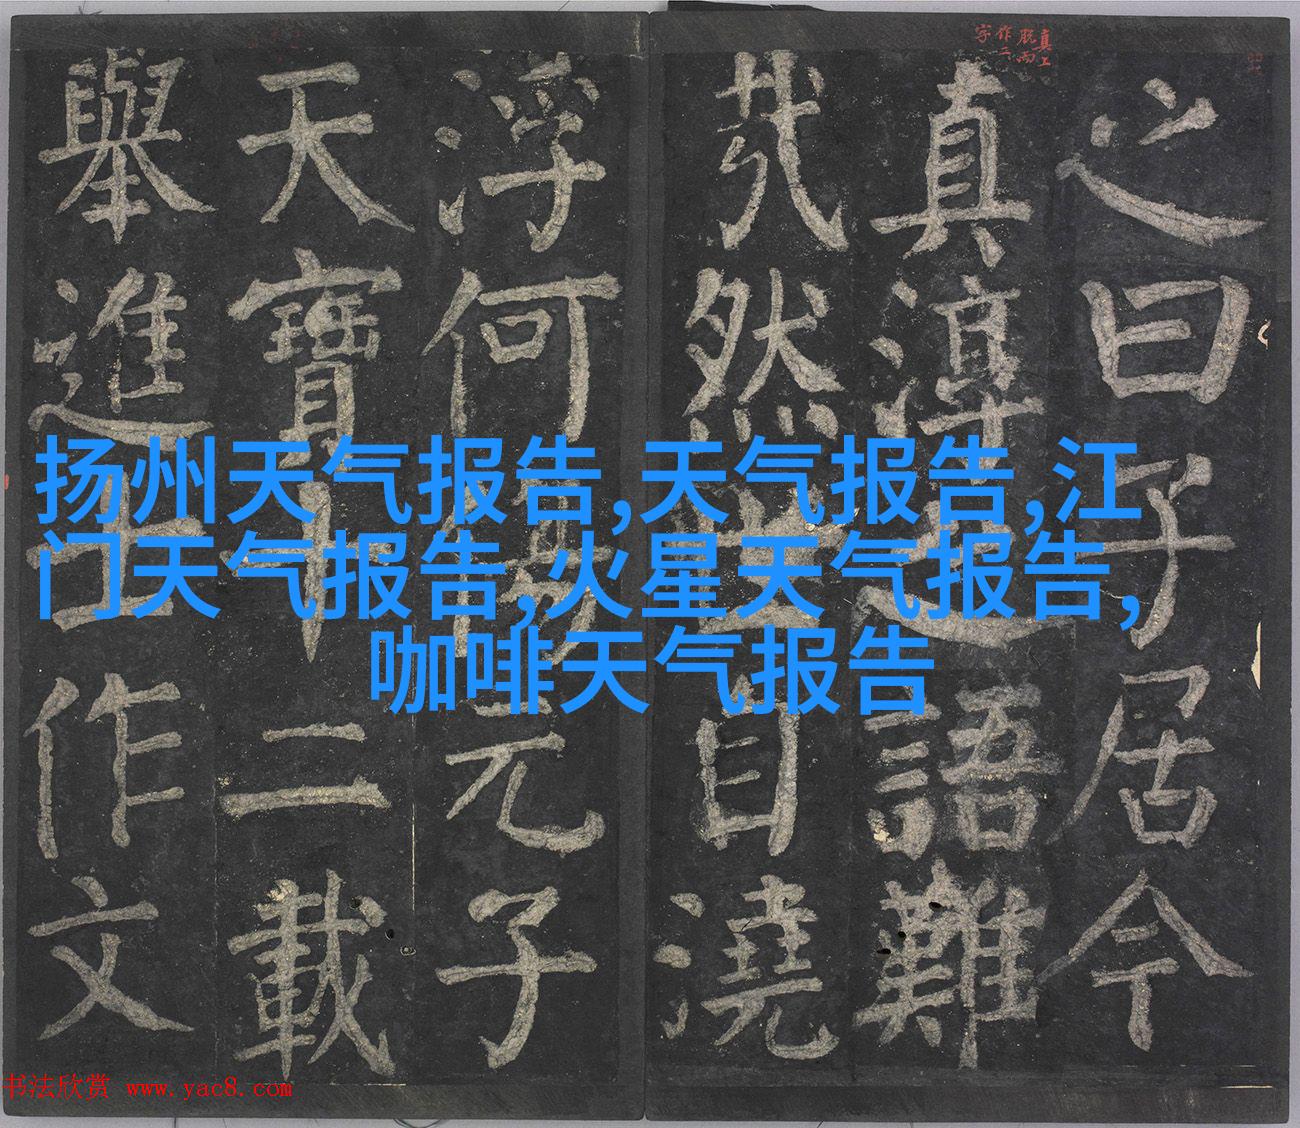 真上
脱而
作二
字
之曰子居今
真淳之語難
哉然世自澆
浮何傷元子
天寶十二載
舉進士作文
扬州天气报告,天气报告,江
门天气报告,火星天气报告,
咖啡天气报告
书法欣赏 www.yac8.com